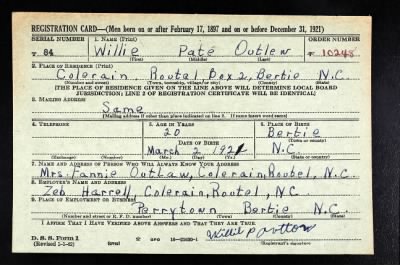 REGISTRATION CARD—(Men born on or after February 17, 1897 and on or before December 31, 1921)
SERIAL NUMBER 1. NAME (Print) ORDER NUMBER
T 84 Willie Pate Outlew T 10248
(First) (Middle) (Last)
2. PLACE OF RESIDENCE (Print)
Colerain, Route1 Box 2, Bertie N.C.
(Number and street) (Town, township, village, or city) (County) (State)
[THE PLACE OF RESIDENCE GIVEN ON THE LINE ABOVE WILL DETERMINE LOCAL BOARD
JURISDICTION; LINE 2 OF REGISTRATION CERTIFICATE WILL BE IDENTICAL]
3. MAILING ADDRESS
Same
[Mailing address if other than place indicated on line 2. If same insert word same]
4. TELEPHONE 5. AGE IN YEARS 6. PLACE OF BIRTH
20 Bertie
DATE OF BIRTH (Town or county)
March 2 1921 N.C.
(Exchange) (Number) (Mo.) (Day) (Yr.) (State or country)
7. NAME AND ADDRESS OF PERSON WHO WILL ALWAYS KNOW YOUR ADDRESS
Mrs. Fannie Outlaw, Colerain, Route1, N.C.
8. EMPLOYER'S NAME AND ADDRESS
Zeb Harrell, Colerain, Route1, N.C.
9. PLACE OF EMPLOYMENT OR BUSINESS
Perrytown Bertie N.C.
(Number and street or R. F. D. number) (Town) (County) (State)
I AFFIRM THAT I HAVE VERIFIED ABOVE ANSWERS AND THAT THEY ARE TRUE.
D. S. S. FORM 1 Willie P
(Revised 1-1-42) (over) GPO 16—21630-1 (Registrant's signature)